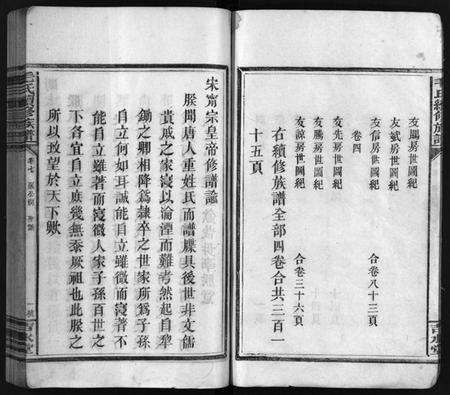 毛氏續修族譜
友賜房世圖紀
友斌房世圖紀
友信房世圖紀 合卷八十三頁
卷四
友先房世圖紀
友騰房世圖紀
友諒房世圖紀 合卷三十六頁
右續修族譜全部四卷合共三百一
十五頁
宋甯宗皇帝修譜諭
朕聞唐人重姓氏而譜牒具後世非文儒
貴戚之家寖以淪湮而難考然起自犂
鋤之卿相降爲隸卒之世家所爲子孫
自立何如耳誠能自立雖微而寖著不
能自立雖著而寖微人家子孫百世之
下各宜自立庶幾無忝厥祖也此朕之
所以致望於天下歟
毛氏續修族譜
卷七